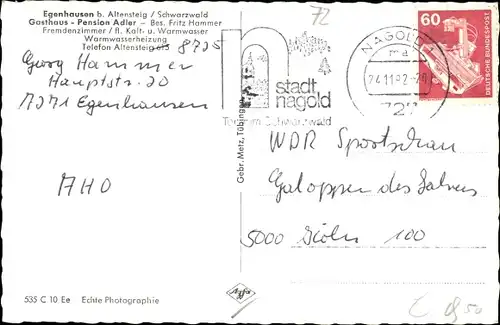 Egenhausen b. Altensteig / Schwarzwald
Gasthaus - Pension Adler – Bes. Fritz Hammer
Fremdenzimmer / fl. Kalt- u. Warmwasser
Warmwasserheizung
Telefon Altensteig 8725
Georg Hammer
Hauptstr. 20
7271 Egenhausen
AHO
535 C 10 Ee Echte Photographie
Gebr. Metz, Tübingen
72
stadt
nagold
Schwarzwald
NAGOLD
md
24.11.82
727
60
DEUTSCHE BUNDESPOST
WDR Sportschau
Galopper des Jahres
5000 Köln 100